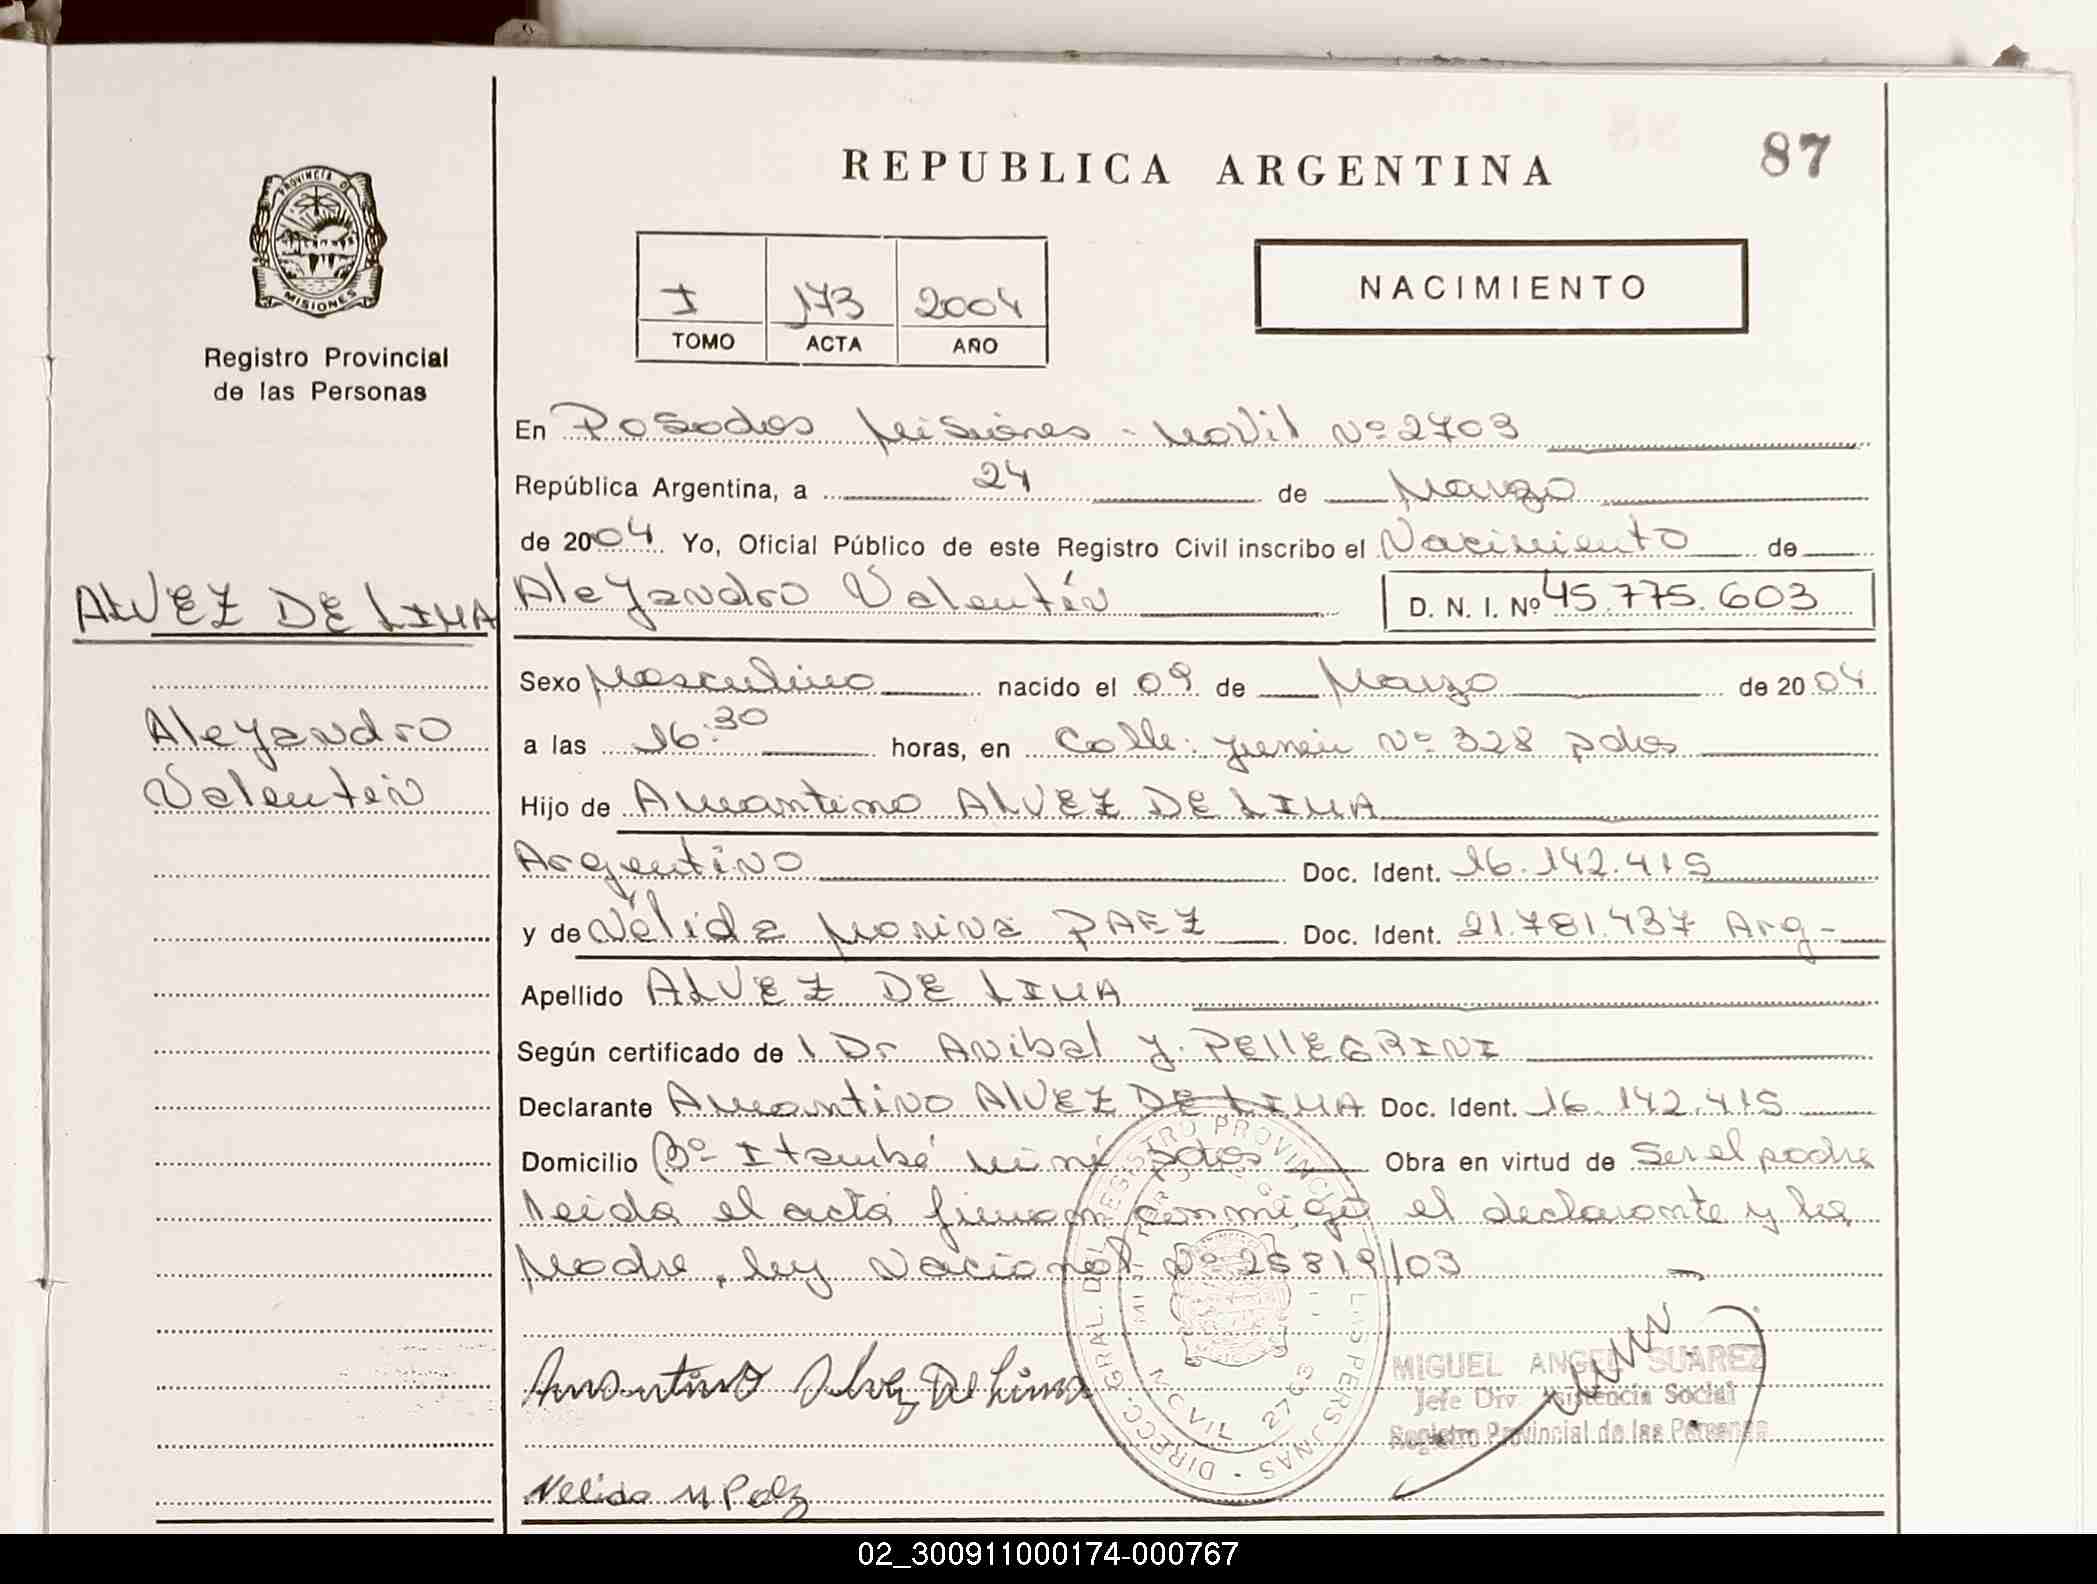 REPUBLICA ARGENTINA
87
PROVINCIA DE
MISIONES
Registro Provincial
de las Personas
I 173 2004
TOMO ACTA AÑO
NACIMIENTO
En Posadas Misiones - Movil Nº 2703
República Argentina, a 24 de Marzo
de 2004 Yo, Oficial Público de este Registro Civil inscribo el Nacimiento de
ALVEZ DE LIMA
Aleyandro Valentín D. N. I. Nº 45.775.603
Sexo Masculino nacido el 09 de Marzo de 2004
Aleyandro
Valentin
a las 16:30 horas, en Calle: Junin Nº 328 pdas
Hijo de Amantino ALVEZ DE LIMA
Argentino Doc. Ident. 16.142.415
y de Nélida Marina PAEZ Doc. Ident. 21.781.437 Arg-
Apellido ALVEZ DE LIMA
Según certificado de l Dr Anibal J. PEllEGRINI
Declarante Amantino AlVEZ DE LIMA Doc. Ident. 16.142.415
Domicilio Bº Itaembé miní pdas Obra en virtud de Ser el padre
leida el acta firman conmigo el declarante y la
Madre, ley Nacional Nº 25819/03
Amantino Alvez De Lima
DIRECC. GRAL. DEL REGISTRO PROVINCIAL DE LAS PERSONAS
MOVIL 2703
MIGUEL ANGEL SUAREZ
Jefe Div Asistencia Social
Registro Provincial de las Personas
Nelida M Paez
02_300911000174-000767